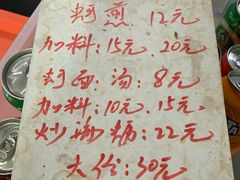 蚵煎 12元
加料:15元、20元
蚵面、汤:8元
加料:10元、15元、
炒海蛎:22元
大份:30元